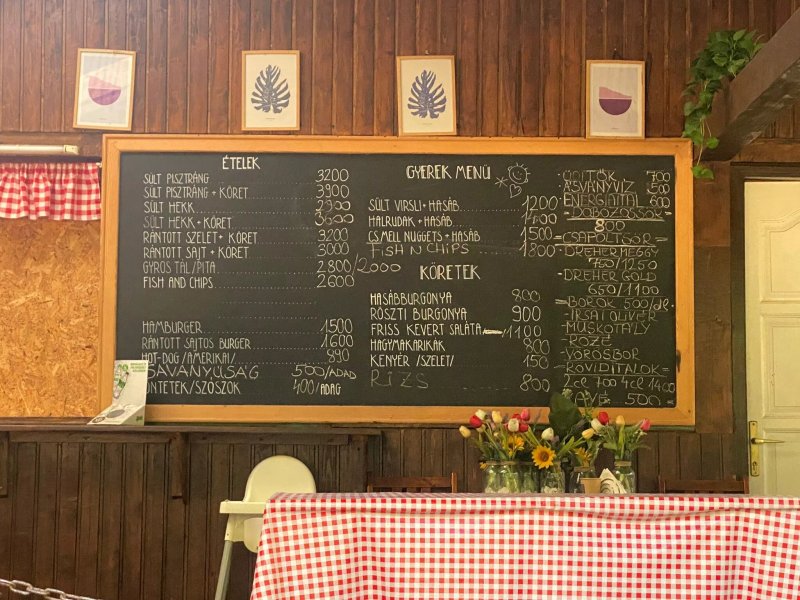 ÉTELEK
SÜLT PISZTRÁNG 3200
SÜLT PISZTRÁNG + KÖRET 3900
SÜLT HEKK 2900
SÜLT HEKK + KÖRET 3600
RÁNTOTT SZELET + KÖRET 3200
RÁNTOTT SAJT + KÖRET 3000
GYROS TÁL/PITA 2800/2000
FISH AND CHIPS 2600
HAMBURGER 1500
RÁNTOTT SAJTOS BURGER 1600
HOT-DOG /AMERIKAI/ 890
SAVANYÚSÁG 500/ADAG
ÖNTETEK/SZÓSZOK 400/ADAG
GYEREK MENÜ
SÜLT VIRSLI + HASÁB 1200
HALRUDAK + HASÁB
CSMELL NUGGETS + HASÁB 1500
FISH N CHIPS 1800
KÖRETEK
HASÁBBURGONYA 800
RÖSZTI BURGONYA 900
FRISS KEVERT SALÁTA 1100
HAGYMAKARIKÁK 800
KENYÉR /SZELET/ 150
RIZS 800
ÜDÍTŐK 700
ÁSVÁNYVÍZ 500
ENERGIAITAL 600
DOBOZOS SÖR
800
CSAPOLT SÖR
DREHER MEGGY
750/1250
DREHER GOLD
650/1100
BOROK 500/dl
IRSAI OLIVÉR
MUSKOTÁLY
ROZÉ
VÖRÖSBOR
RÖVIDITALOK
2cl 700 4cl 1400
KÁVÉ 500